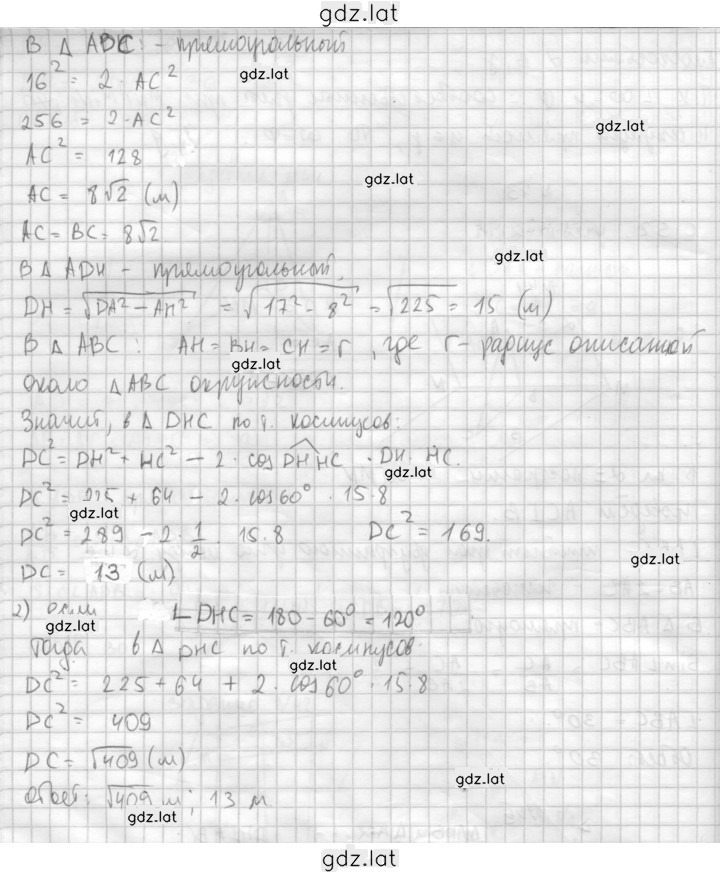 gdz.lat
В Δ ABC: - прямоугольный
gdz.lat
16² = 2 · AC²
256 = 2·AC²
gdz.lat
AC² = 128
gdz.lat
AC = 8√2 (м)
AC = BC = 8√2
gdz.lat
В Δ ADH - прямоугольный,
DH = √DA² - AH² = √17² - 8² = √225 = 15 (м)
В Δ ABC: AH = BH = CH = r, где r - радиус описанной
gdz.lat
около Δ ABC окружности.
Значит, в Δ DHC по т. косинусов:
DC² = DH² + HC² - 2 · cos DHHC · DH · HC.
gdz.lat
DC² = 225 + 64 - 2 · cos 60° · 15 · 8
gdz.lat
DC² = 289 - 2 · 1/2 · 15 · 8 DC² = 169.
gdz.lat
DC = 13 (м)
2) если ∟DHC = 180 - 60° = 120°
gdz.lat
Тогда в Δ DHC по т. косинусов:
gdz.lat
DC² = 225 + 64 + 2 · cos 60° · 15 · 8
DC² = 409
DC = √409 (м)
gdz.lat
Ответ: √409 м; 13 м.
gdz.lat
gdz.lat